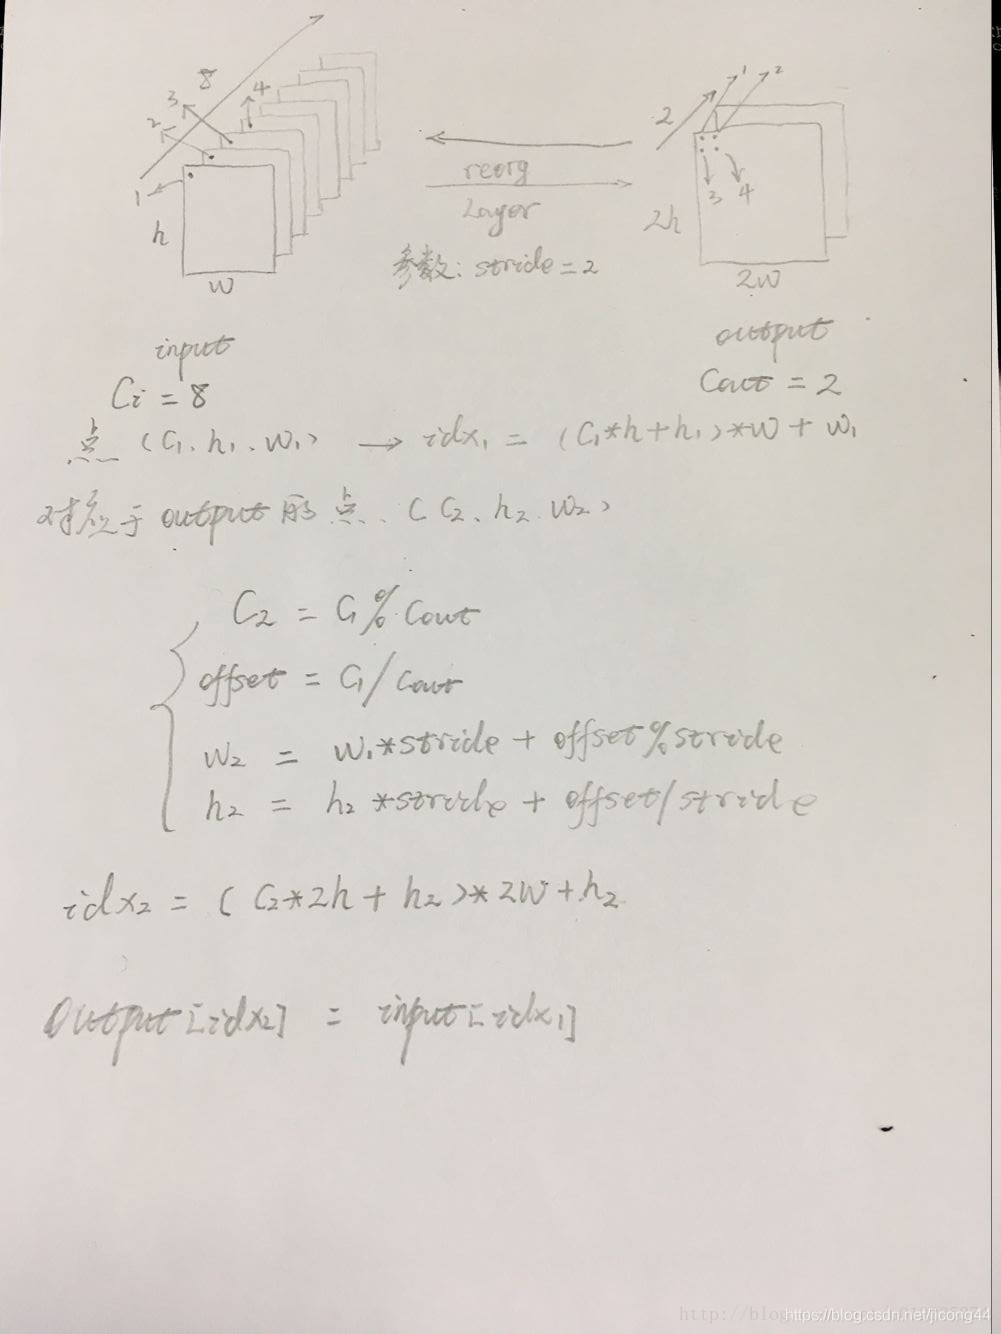 8
3
4
2
1
h
w
reorg
Layer
参数: stride = 2
2
1
2
3
4
2h
2w
input
Ci = 8
output
Cout = 2
点 (C1、h1、w1) → idx1 = (C1*h+h1)*w + w1
对应于 output 的 点、(C2、h2、w2)
C2 = C1 % Cout
offset = C1/Cout
w2 = w1*stride + offset%stride
h2 = h2 *stride + offset/stride
idx2 = (C2*2h + h2)*2w+h2
Output[idx2] = input[idx1]
https://blog.csdn.net/jicong44